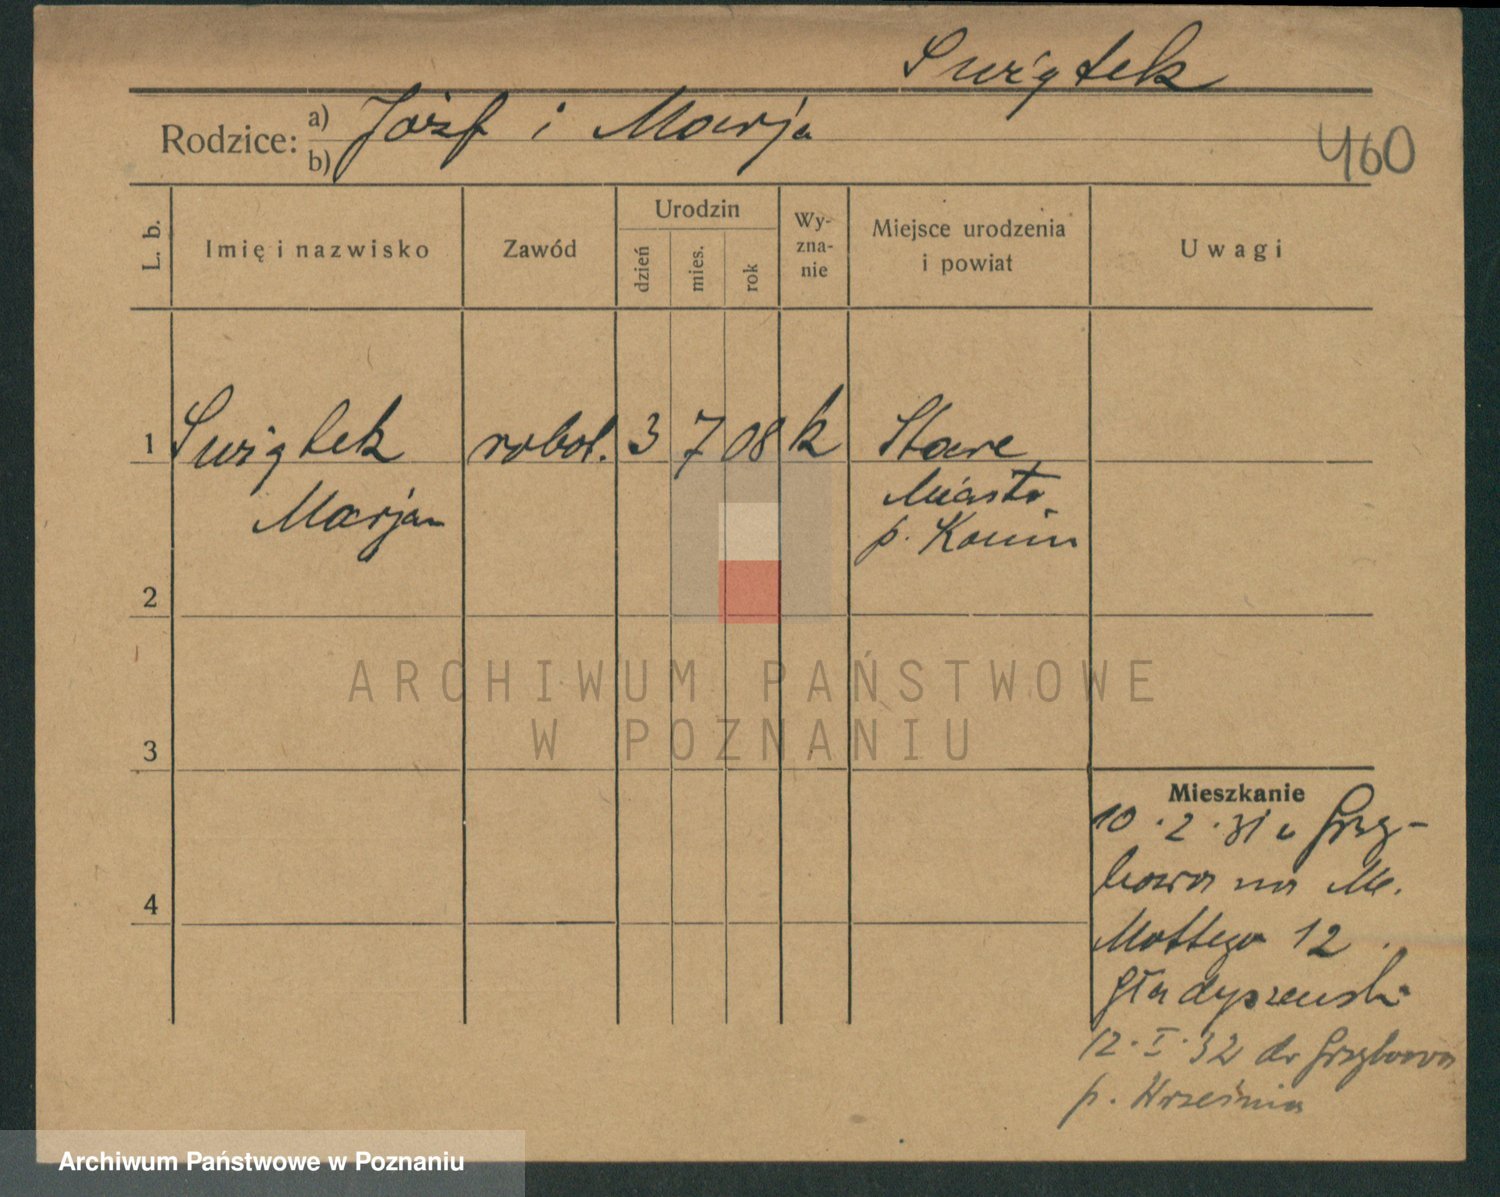 Swiątek
Rodzice: a) Józef i Marja
b)
460
L. b.
Imię i nazwisko
Zawód
Urodzin
dzień
mies.
rok
Wy-
zna-
nie
Miejsce urodzenia
i powiat
Uwagi
1 Swiątek robot. 3 7 08 k Stare
Marjan
Miasto
p. Konin
2
3
4
ARCHIWUM PAŃSTWOWE
W POZNANIU
Mieszkanie
10.2.31 z Grzy-
bowa na M.
Mottego 12
Gładyszewski
12.I.32 do Grzybowa
p. Września
Archiwum Państwowe w Poznaniu